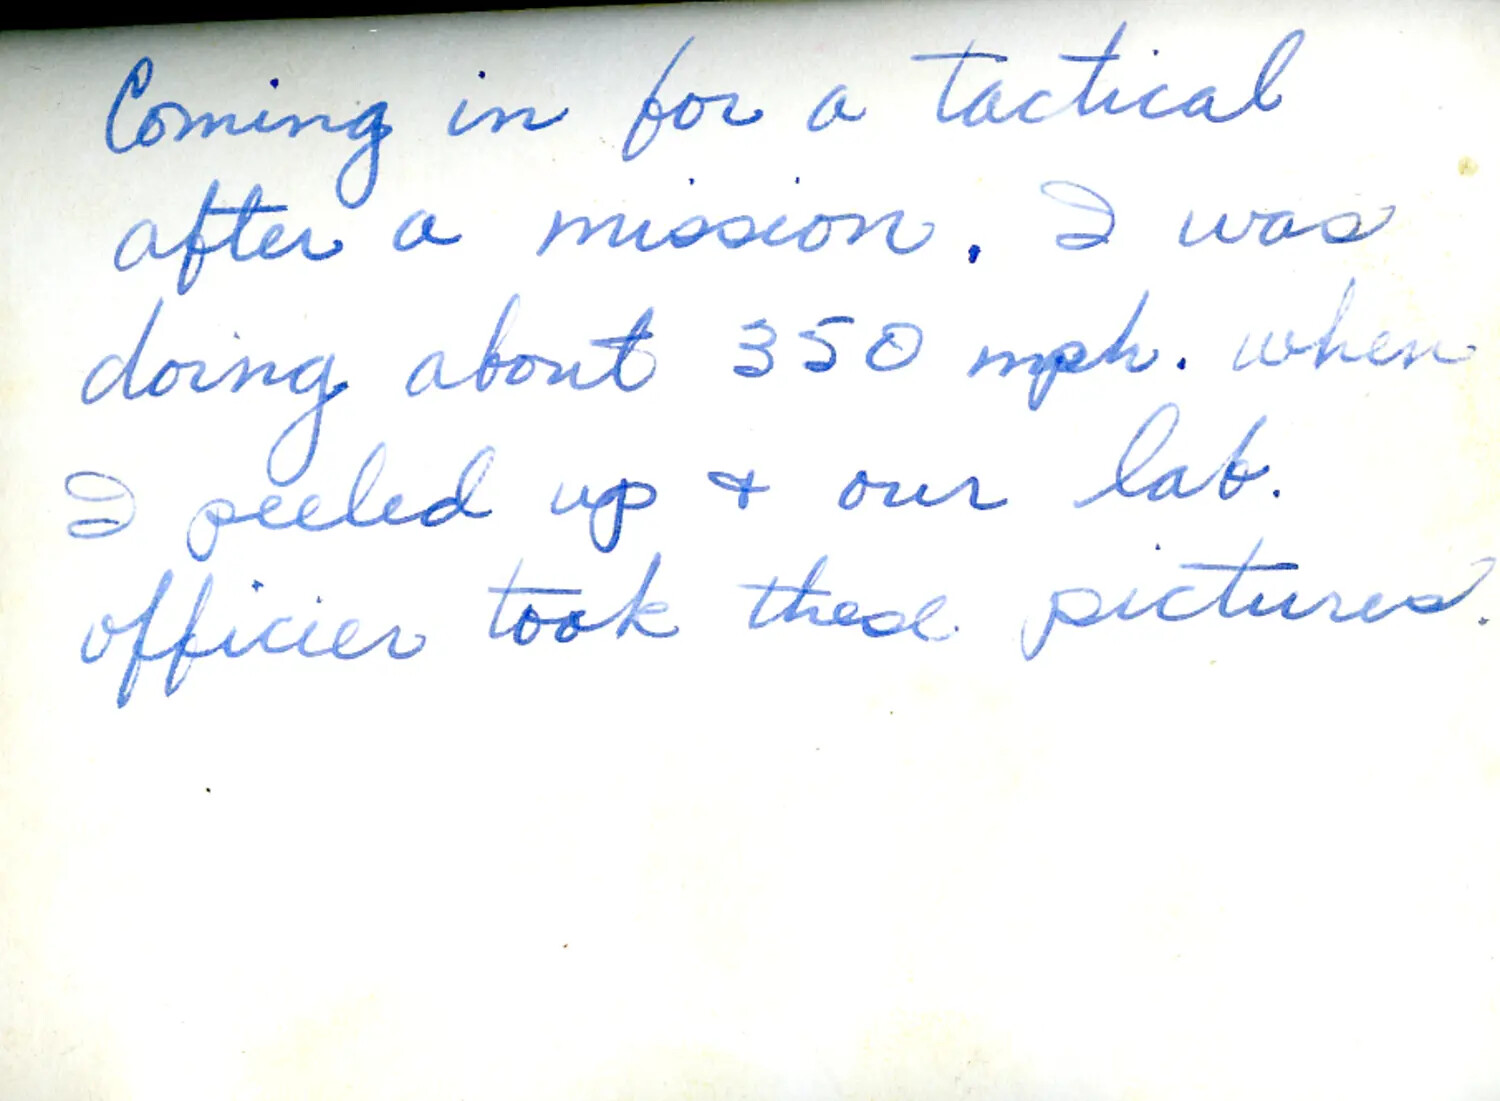 Coming in for a tactical
after a mission. I was
doing about 350 mph. when
I peeled up & our lab.
officier took these pictures.